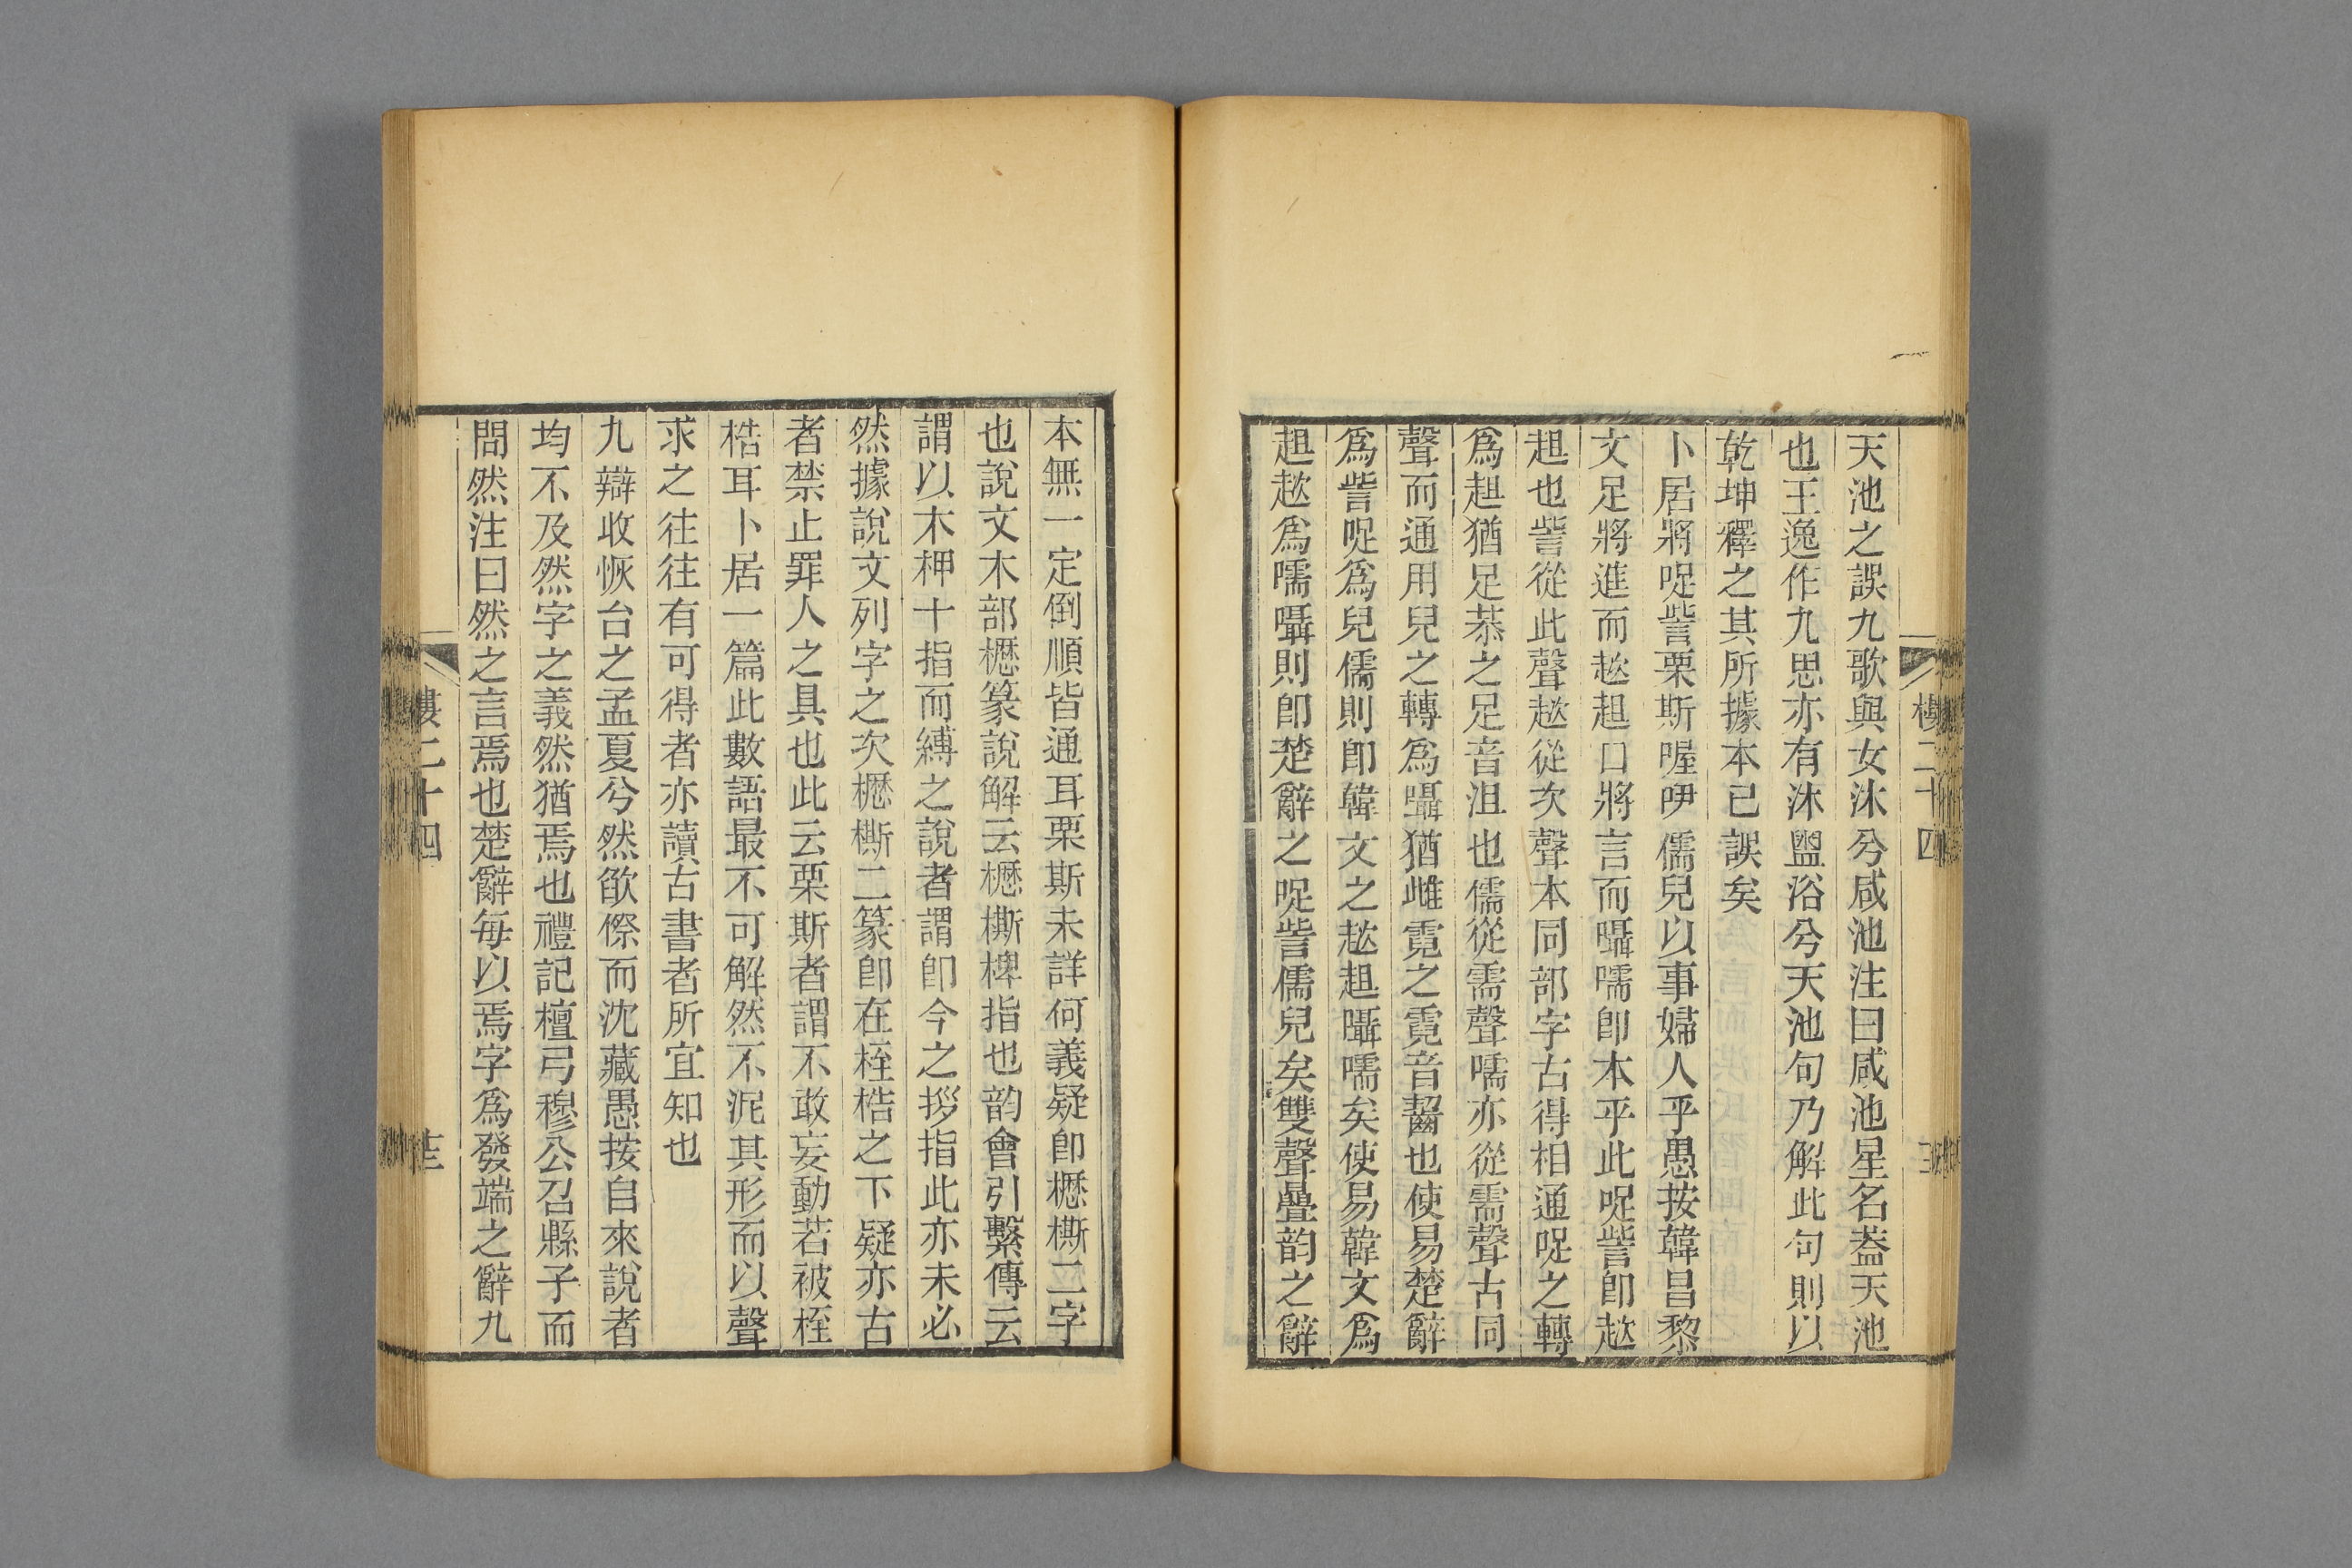 天池之誤九歌與女沐兮咸池注曰咸池星名葢天池
也王逸作九思亦有沐盥浴兮天池句乃解此句則以
乾坤釋之其所據本已誤矣
卜居將哫訾栗斯喔咿儒兒以事婦人乎愚按韓昌黎
文足將進而趑趄口將言而囁嚅卽本乎此哫訾卽趑
趄也訾從此聲趑從次聲本同部字古得相通哫之轉
爲趄猶足恭之足音沮也儒從需聲嚅亦從需聲古同
聲而通用兒之轉爲囁猶雌霓之霓音齧也使易楚辭
爲訾哫爲兒儒則卽韓文之趑趄囁嚅矣使易韓文爲
趄趑爲嚅囁則卽楚辭之哫訾儒兒矣雙聲疊韵之辭
樓二十四
本無一定倒順皆通耳栗斯未詳何義疑卽櫪㯕二字
也說文木部櫪篆說解云櫪㯕椑指也韵會引繫傳云
謂以木柙十指而縛之說者謂卽今之拶指此亦未必
然據說文列字之次櫪㯕二篆卽在桎梏之下疑亦古
者禁止罪人之具也此云栗斯者謂不敢妄動若被桎
梏耳卜居一篇此數語最不可解然不泥其形而以聲
求之往往有可得者亦讀古書者所宜知也
九辯收恢台之孟夏兮然欿傺而沈藏愚按自來說者
均不及然字之義然猶焉也禮記檀弓穆公召縣子而
問然注曰然之言焉也楚辭每以焉字爲發端之辭九
樓二十四